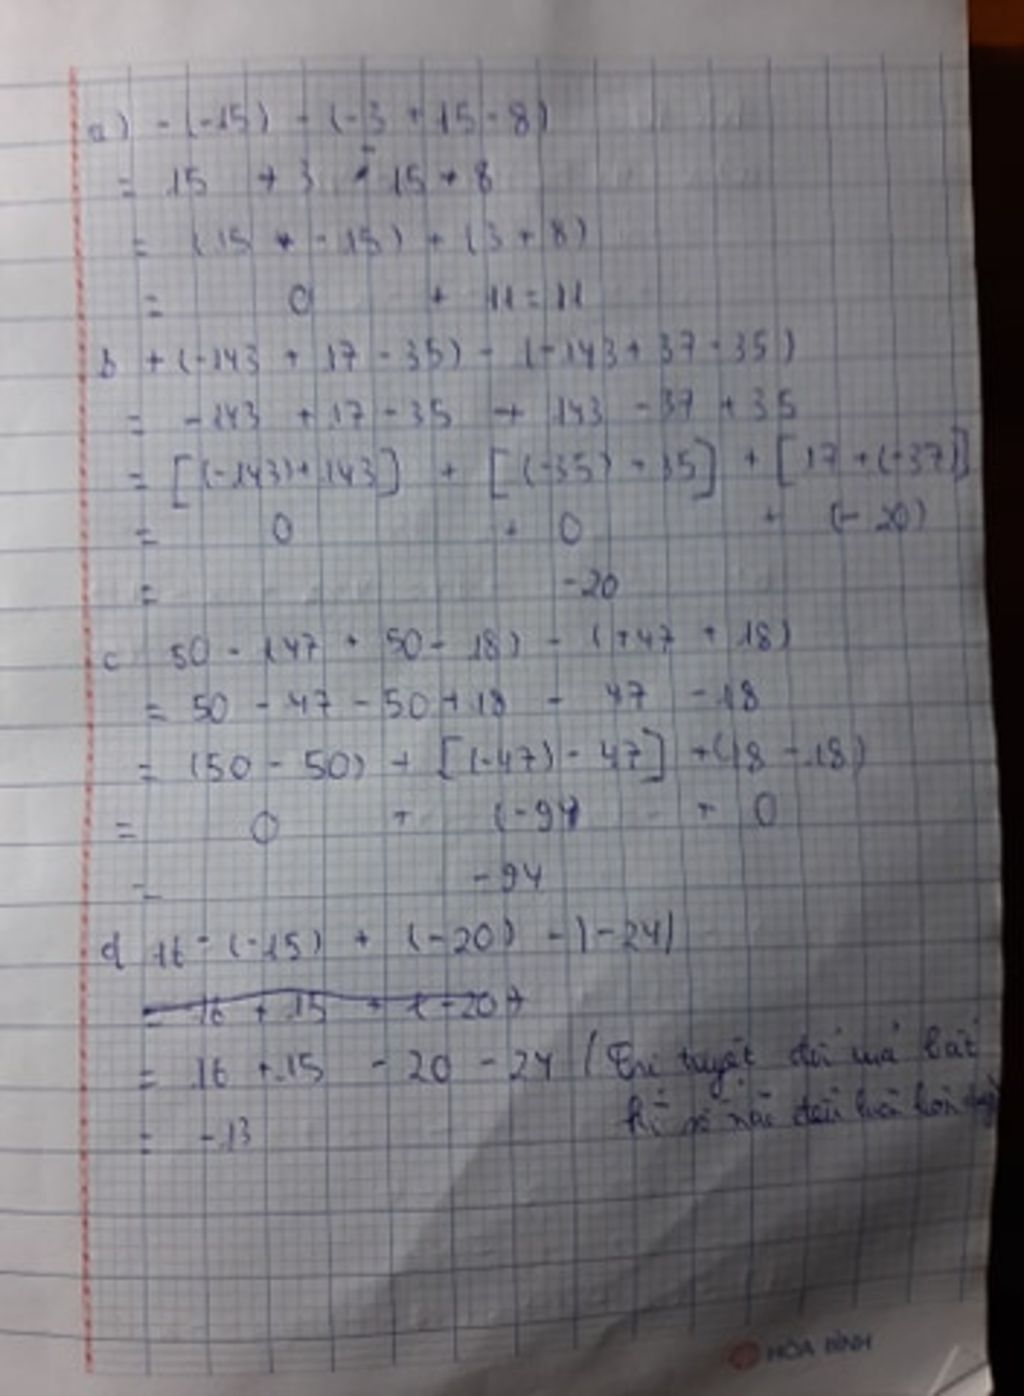 a) - (-15) - (-3 + 15 - 8)
= 15 + 3 - 15 + 8
= (15 + -15) + (3 + 8)
= 0 + 11 = 11
b + (-143 + 17 - 35) - (-143 + 37 - 35)
= -143 + 17 - 35 + 143 - 37 + 35
= [(-143) + 143] + [(-35) + 35] + [17 + (-37)]
= 0 + 0 + (-20)
= -20
c 50 - (47 + 50 - 18) - (+47 + 18)
= 50 - 47 - 50 + 18 - 47 - 18
= (50 - 50) + [(-47) - 47] + (18 - 18)
= 0 + (-94) + 0
= -94
d 16 - (-15) + (-20) - |-24|
= 16 + 15 + (-20)
= 16 + 15 - 20 - 24 ( tuyệt đối bất
kì số nào đều luôn
= -13
HÒA BÌNH